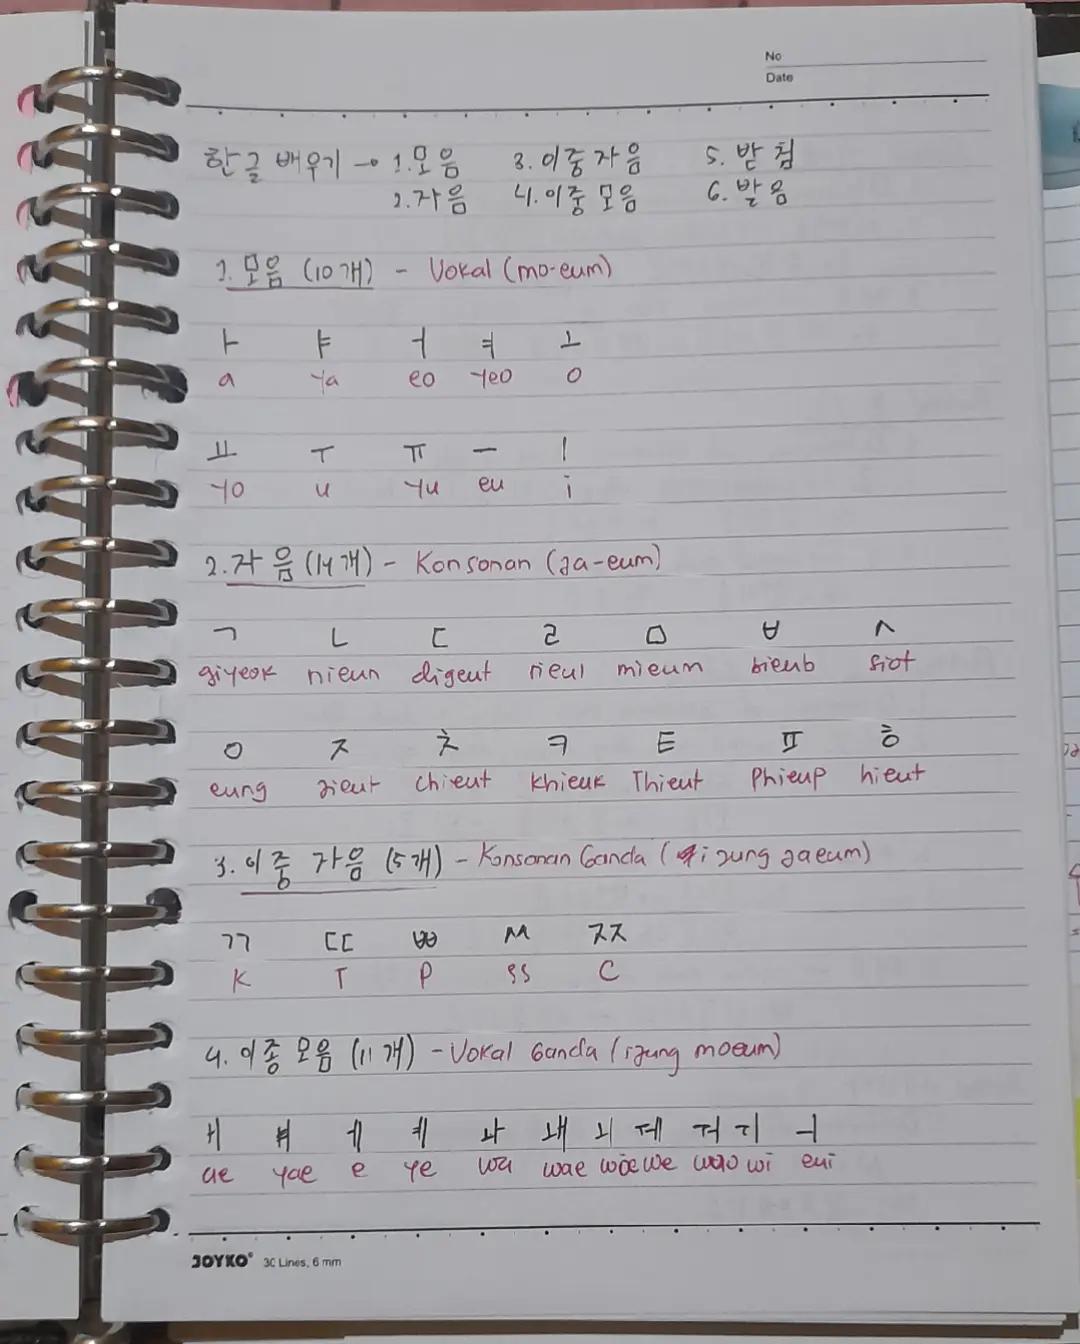 No
Date
한글 배우기 → 1. 모음 3. 이중자음 5. 받침
2. 자음 4. 이중모음 6. 발음
1. 모음 (10개) - Vokal (mo-eum)
ㅏ ㅑ ㅓ ㅕ ㅗ
a ya eo yeo o
ㅛ ㅜ ㅠ ㅡ ㅣ
yo u yu eu i
2. 자음 (14개) - Konsonan (ja-eum)
ㄱ ㄴ ㄷ ㄹ ㅁ ㅂ ㅅ
giyeok nieun digeut rieul mieum bieub siot
ㅇ ㅈ ㅊ ㅋ ㅌ ㅍ ㅎ
eung jieut chieut khieuk Thieut Phieup hieut
3. 이중 자음 (5개) - Konsonan Ganda (i jung jaeum)
ㄲ ㄸ ㅃ ㅆ ㅉ
K T P ss C
4. 이중 모음 (11개) - Vokal Ganda (ijung moeum)
ㅐ ㅒ ㅔ ㅖ ㅘ ㅙ ㅚ ㅞ ㅝ ㅟ ㅢ
ae yae e ye wa wae woe we wi eui
JOYKO 30 Lines, 6 mm